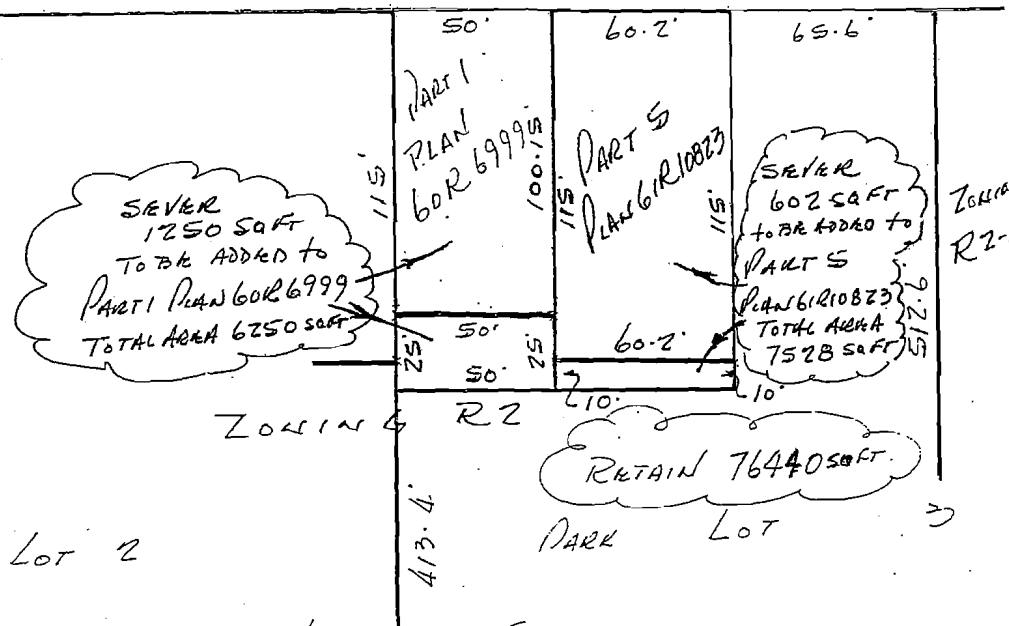 50'
60.2'
65.6'
PART 1
PLAN
60R 6999
115'
100.15
PART 5
PLAN 61R10823
115'
115'
SEVER
1250 SQ FT
TO BE ADDED TO
PART 1 PLAN 60R 6999
TOTAL AREA 6250 SQFT
SEVER
602 SQ FT
TO BE ADDED TO
PART 5
PLAN 61R10823
TOTAL AREA
7528 SQFT
R2-
50'
25'
25'
60.2'
50'
10'
10'
ZONING R2
RETAIN 76440 SQFT.
413.4'
LOT 2
PARK LOT